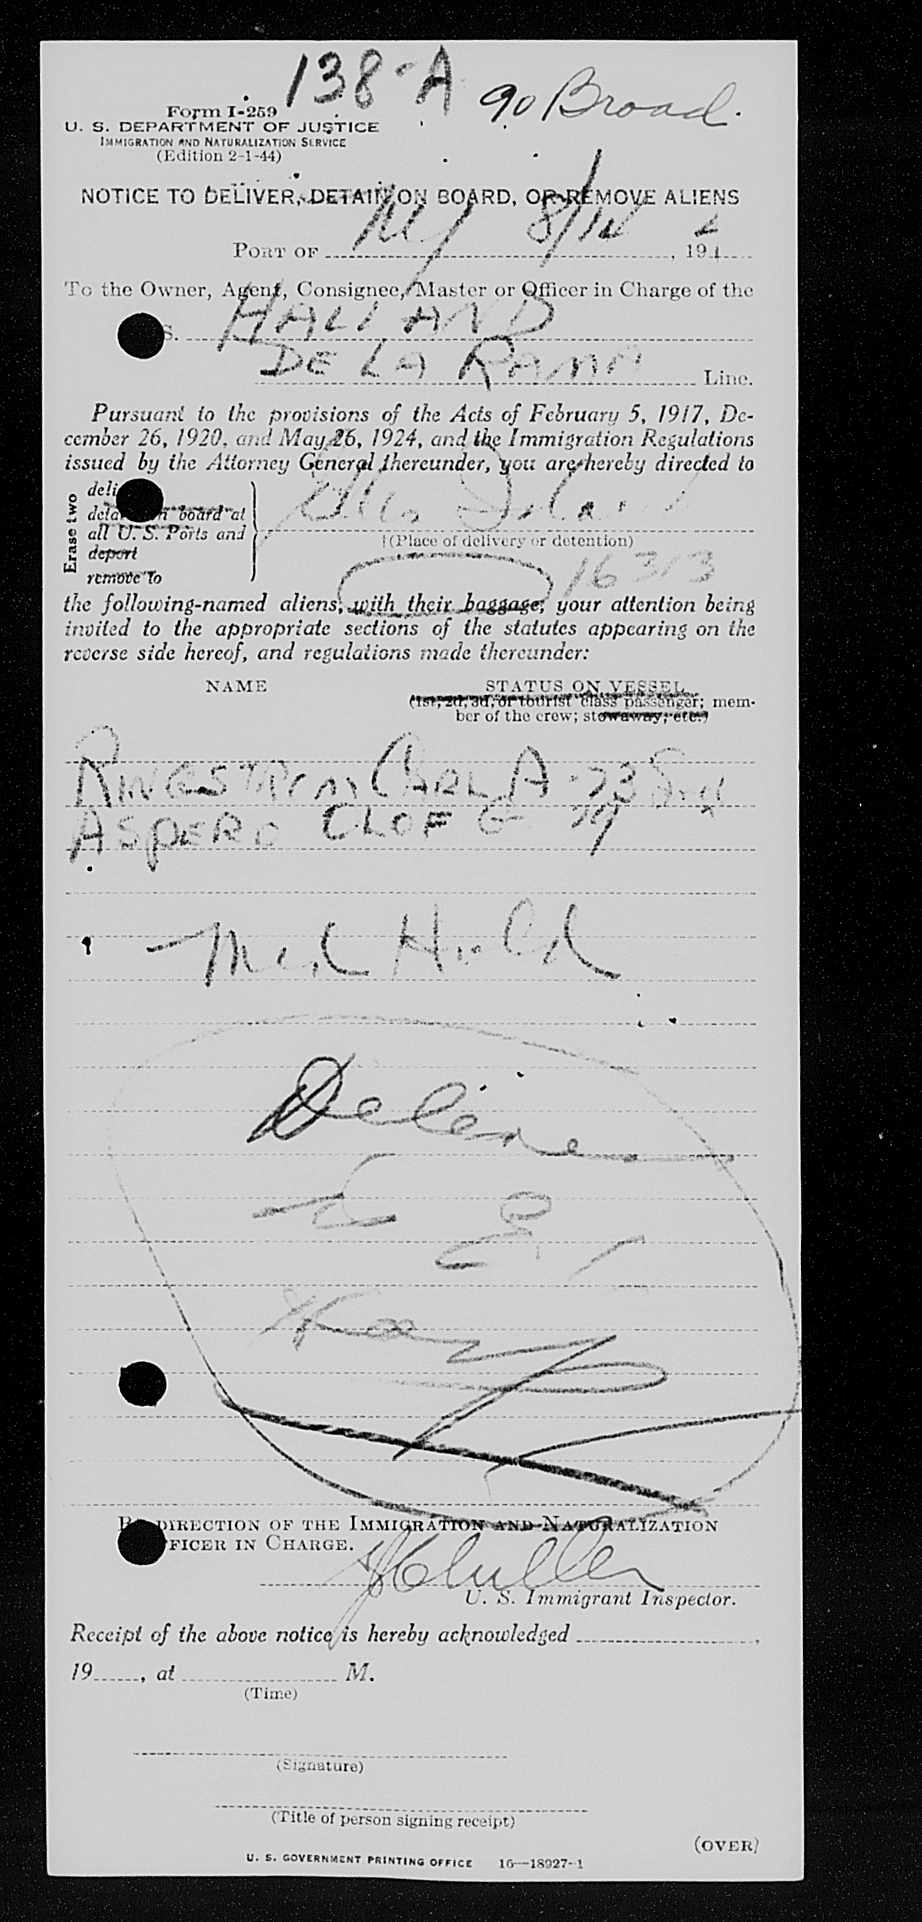 138-A 90 Broad.
Form I-259
U. S. DEPARTMENT OF JUSTICE
IMMIGRATION AND NATURALIZATION SERVICE
(Edition 2-1-44)
NOTICE TO DELIVER, DETAIN ON BOARD, OR REMOVE ALIENS
PORT OF NY 8/14, 194
To the Owner, Agent, Consignee, Master or Officer in Charge of the
S. HALLAND
DE LA RAMA Line.
Pursuant to the provisions of the Acts of February 5, 1917, De-
cember 26, 1920, and May 26, 1924, and the Immigration Regulations
issued by the Attorney General thereunder, you are hereby directed to
Erase two
deli
detain on board at
all U. S. Ports and
deport
remove to
Ellis Island
(Place of delivery or detention)
16313
the following-named aliens, with their baggage, your attention being
invited to the appropriate sections of the statutes appearing on the
reverse side hereof, and regulations made thereunder:
NAME STATUS ON VESSEL
(1st, 2d, 3d, or tourist class passenger; mem-
ber of the crew; stowaway, etc.)
RINGSTROM CARL A - 23 Swd
ASPERO OLOF G 29
Med Hold
Deliver
to E. I.
BY DIRECTION OF THE IMMIGRATION AND NATURALIZATION
OFFICER IN CHARGE.
U. S. Immigrant Inspector.
Receipt of the above notice is hereby acknowledged ,
19 , at M.
(Time)
(Signature)
(Title of person signing receipt)
(OVER)
U. S. GOVERNMENT PRINTING OFFICE 16—18927-1